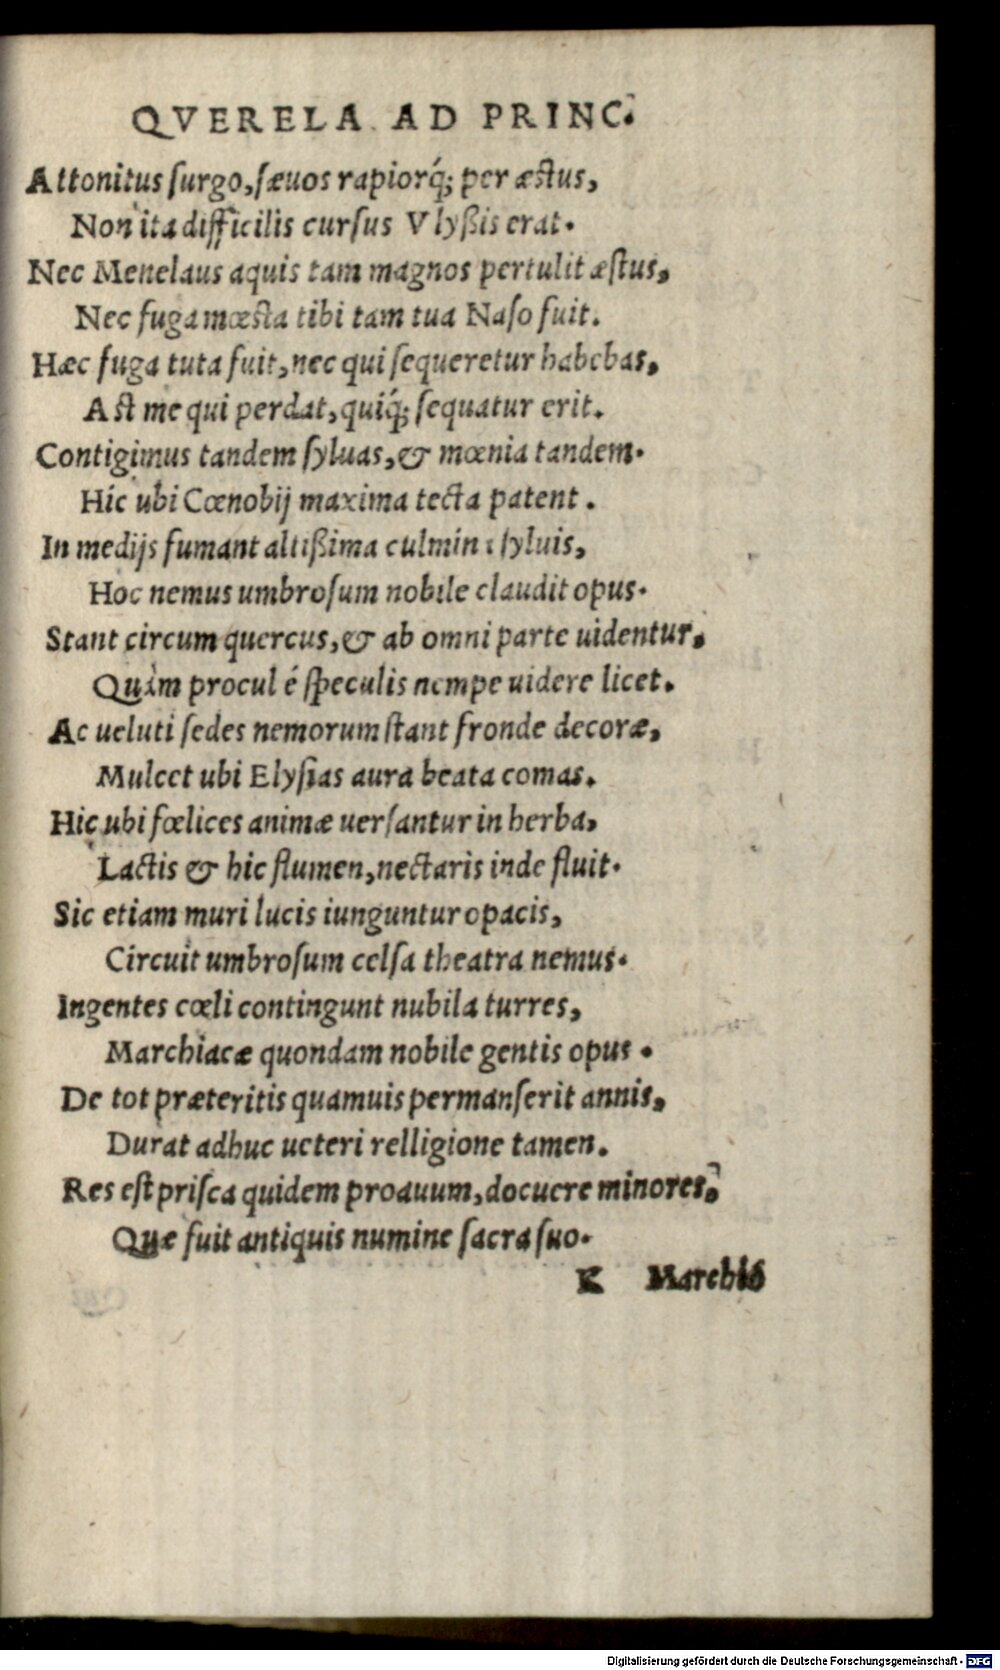 QVERELA AD PRINC.
Attonitus ſurgo, ſæuos rapiorq́; per æstus,
Non ita difficilis cursus Vlyßis erat.
Nec Menelaus aquis tam magnos pertulit æſtus,
Nec fuga mœsta tibi tam tua Naſo fuit.
Hæc fuga tuta fuit, nec qui ſequeretur habebas,
Aſt me qui perdat, quiq́; ſequatur erit.
Contigimus tandem ſyluas, & mœnia tandem.
Hic ubi Cœnobij maxima tecta patent.
In medijs fumant altißima culmina ſyluis,
Hoc nemus umbroſum nobile claudit opus.
Stant circum quercus, & ab omni parte uidentur,
Quàm procul é ſpeculis nempe uidere licet.
Ac ueluti ſedes nemorum ſtant fronde decoræ,
Mulcet ubi Elyſias aura beata comas.
Hic ubi fœlices animæ uerſantur in herba,
Lactis & hic flumen, nectaris inde fluit.
Sic etiam muri lucis iunguntur opacis,
Circuit umbroſum celſa theatra nemus.
Ingentes cœli contingunt nubila turres,
Marchiacæ quondam nobile gentis opus.
De tot præteritis quamuis permanſerit annis,
Durat adhuc ueteri relligione tamen.
Res eſt priſca quidem proauum, docuere minores,
Quæ fuit antiquis numine ſacra ſuo.
K Marchió
Digitalisierung gefördert durch die Deutsche Forschungsgemeinschaft - DFG